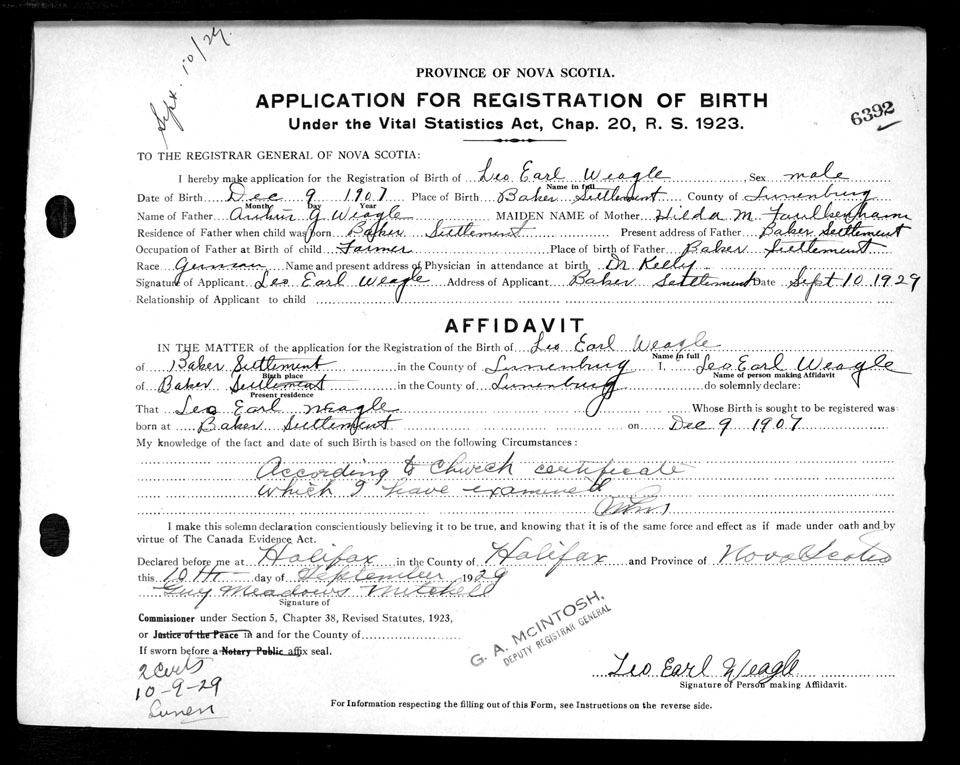 Sept. 10/29.
PROVINCE OF NOVA SCOTIA.
APPLICATION FOR REGISTRATION OF BIRTH
6392
Under the Vital Statistics Act, Chap. 20, R. S. 1923.
TO THE REGISTRAR GENERAL OF NOVA SCOTIA:
I hereby make application for the Registration of Birth of Leo Earl Weagle Sex male
Name in full
Date of Birth Dec 9 1907 Place of Birth Baker Settlement County of Lunenburg
Month Day Year
Name of Father G Weagle MAIDEN NAME of Mother Hilda M. Faulkenham
Residence of Father when child was born Baker Settlement Present address of Father Baker Settlement
Occupation of Father at Birth of child Farmer Place of birth of Father Baker Settlement
Race German Name and present address of Physician in attendance at birth Dr Kelly
Signature of Applicant Leo Earl Weagle Address of Applicant Baker Settlement Date Sept 10 1929
Relationship of Applicant to child
AFFIDAVIT
IN THE MATTER of the application for the Registration of the Birth of Leo Earl Weagle
Name in full
of Baker Settlement in the County of Lunenburg I, Leo Earl Weagle
Birth place Name of person making Affidavit
of Baker Settlement in the County of Lunenburg do solemnly declare:
Present residence
That Leo Earl Weagle Whose Birth is sought to be registered was
born at Baker Settlement on Dec 9 1907
My knowledge of the fact and date of such Birth is based on the following Circumstances:
According to Church certificate
which I have examined
I make this solemn declaration conscientiously believing it to be true, and knowing that it is of the same force and effect as if made under oath and by
virtue of The Canada Evidence Act.
Declared before me at Halifax in the County of Halifax and Province of Nova Scotia
this 10th day of September 1929
Guy Meadows Mitchell
Signature of
Commissioner under Section 5, Chapter 38, Revised Statutes, 1923,
or Justice of the Peace in and for the County of
If sworn before a Notary Public affix seal.
G. A. McINTOSH,
DEPUTY REGISTRAR GENERAL
2 Certs
10-9-29
Lunen
Leo Earl Weagle
Signature of Person making Affidavit.
For Information respecting the filling out of this Form, see Instructions on the reverse side.